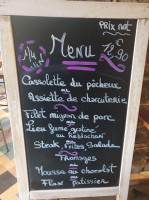 Prix net
Menu
€
12,90
Cassolette du pêcheur
ou
Assiette de charcuterie
Filet mignon de porc
ou
Lieu
Steak frites Salade
Fromages
ou
Mousse au chocolat
ou
Flan Patissier